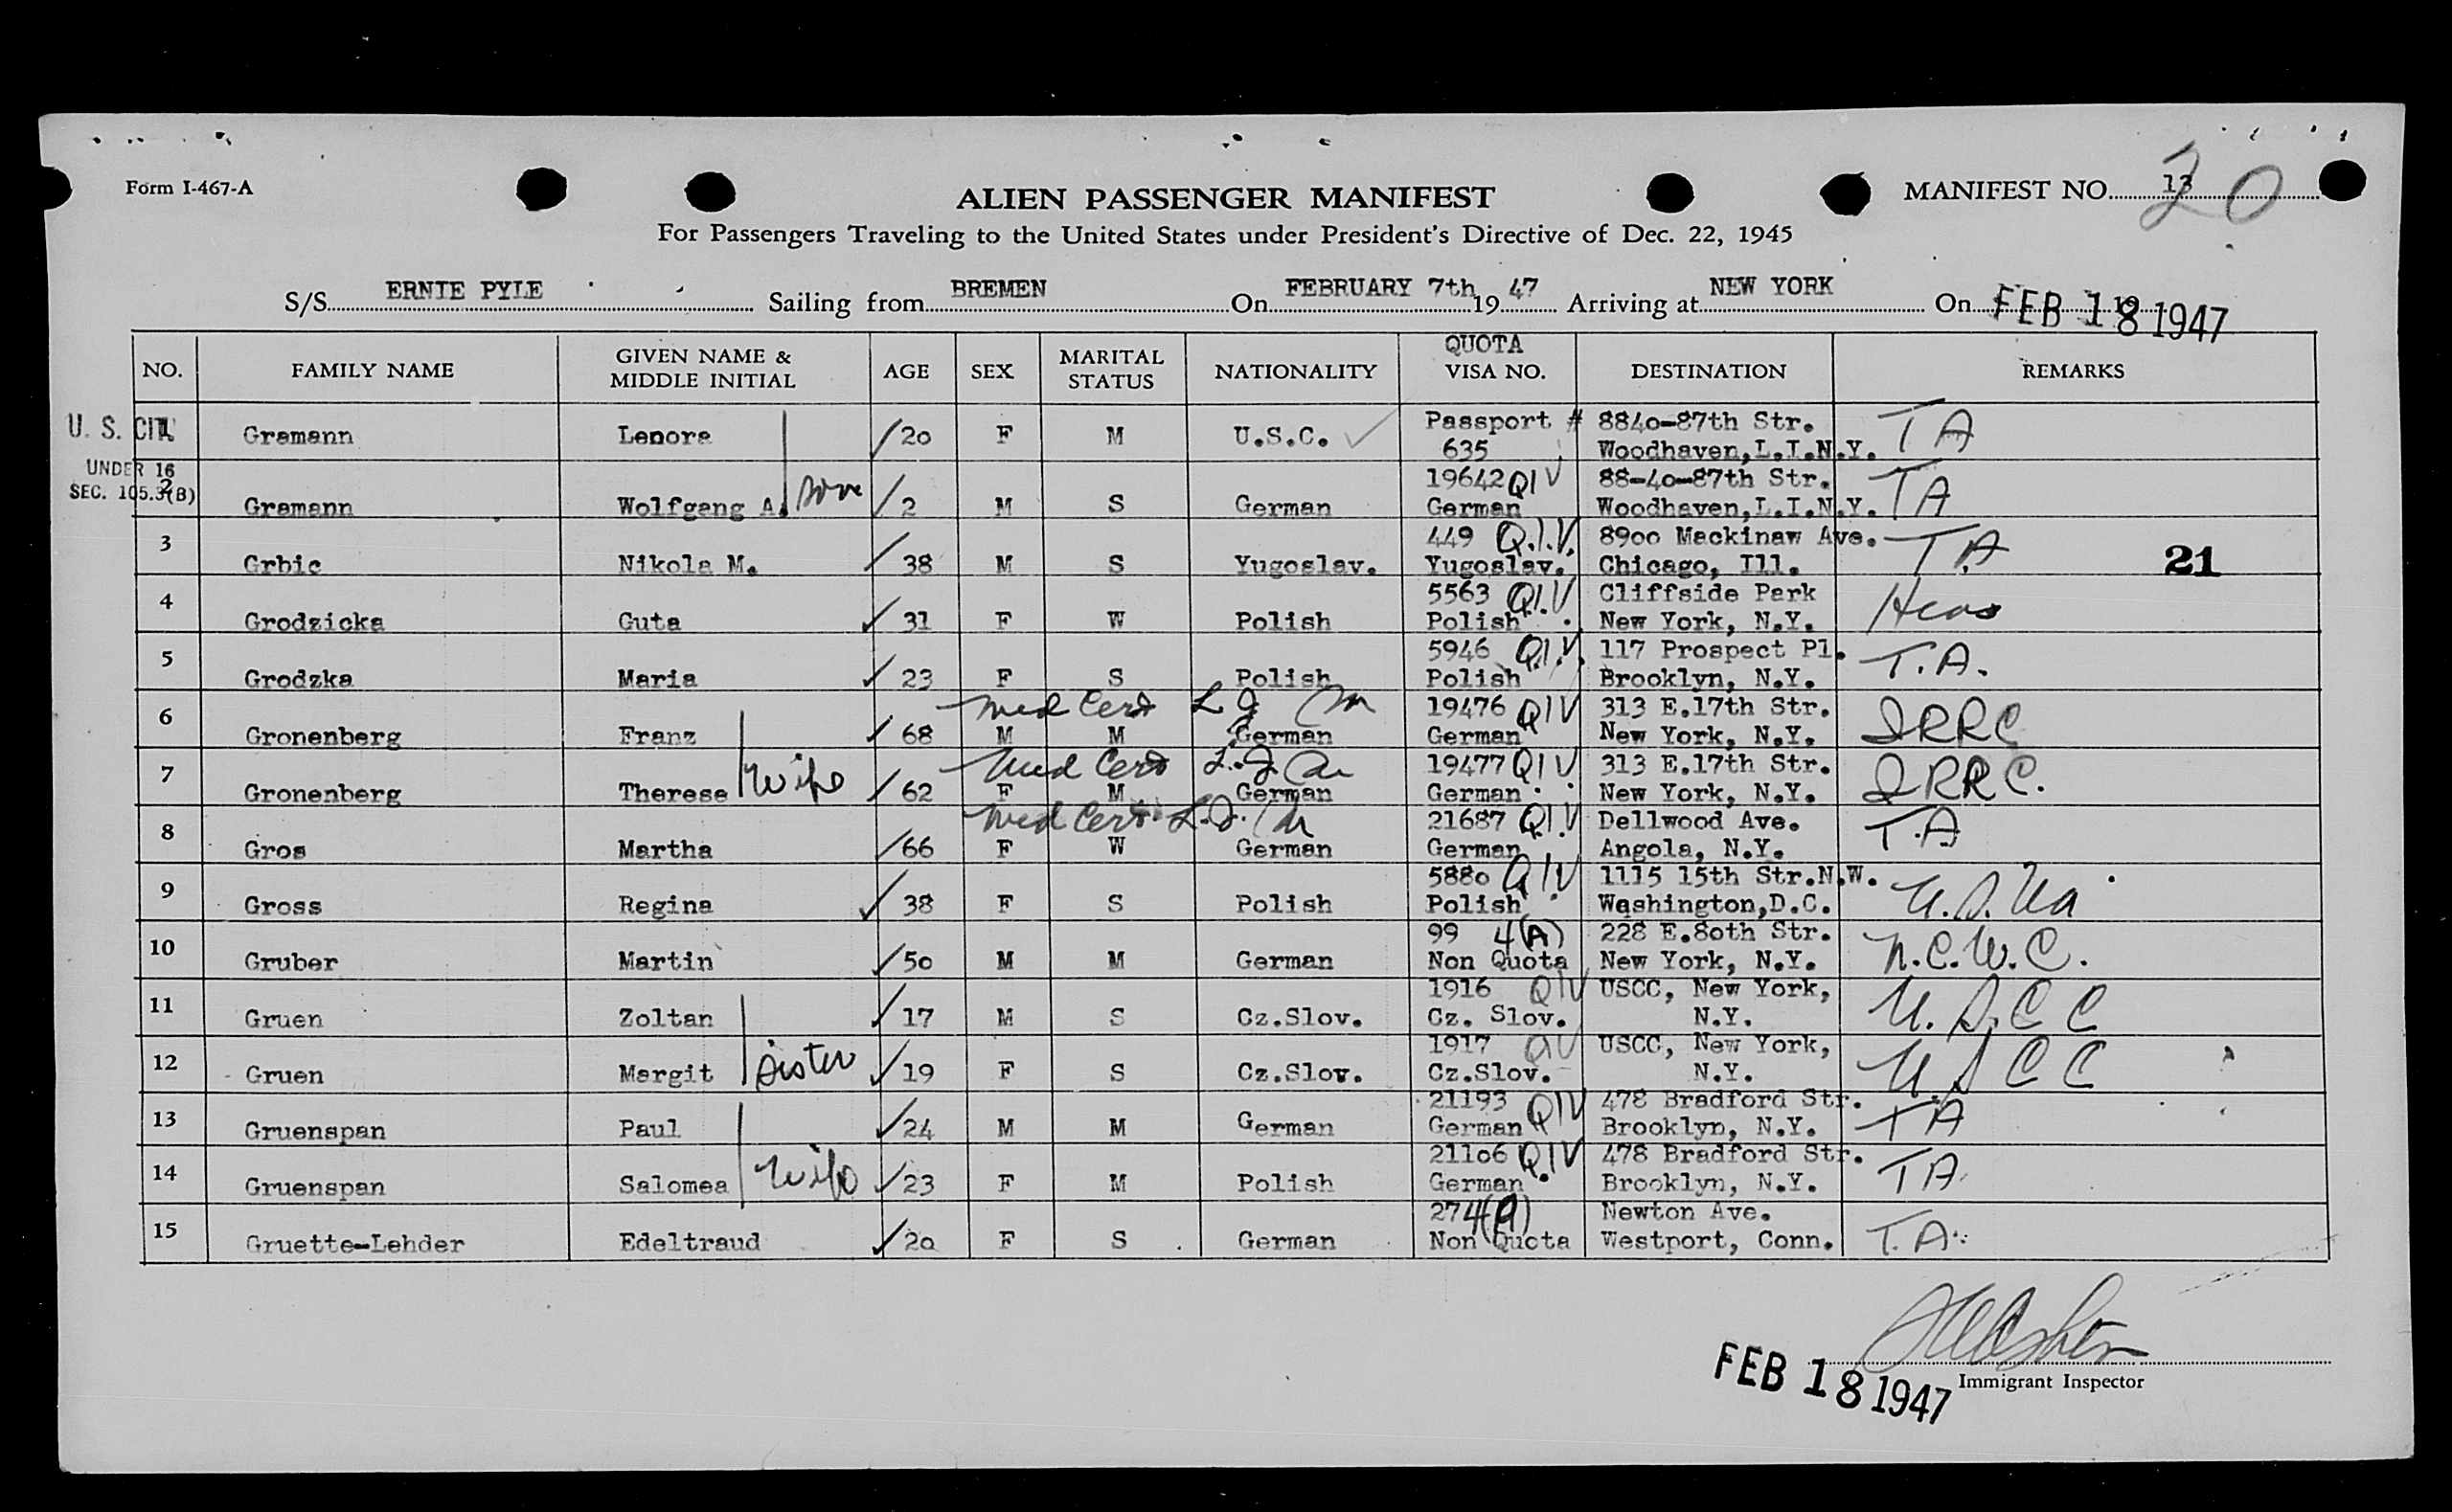 Form I-467-A
ALIEN PASSENGER MANIFEST
MANIFEST NO. 13 20
For Passengers Traveling to the United States under President's Directive of Dec. 22, 1945
S/S ERNIE PYLE Sailing from BREMEN On FEBRUARY 7th 19 47 Arriving at NEW YORK On FEB 18 1947
NO. FAMILY NAME GIVEN NAME & MIDDLE INITIAL AGE SEX MARITAL STATUS NATIONALITY QUOTA VISA NO. DESTINATION REMARKS
U. S. CIT. Passport # 8840-87th Str. TA
Gramann Lenora 20 F M U.S.C. 635 Woodhaven, L.I.N.Y.
UNDER 16 19642 QIV 88-40-87th Str. TA
SEC. 105.3(B) 2 Gramann Wolfgang A. son 2 M S German German Woodhaven, L.I.N.Y.
3 449 Q.I.V. 8900 Mackinaw Ave. T.A 21
Grbic Nikola M. 38 M S Yugoslav. Yugoslav. Chicago, Ill.
4 5563 QI.V Cliffside Park Hias
Grodzicka Guta 31 F W Polish Polish New York, N.Y.
5 5946 Q.I.V. 117 Prospect Pl. T.A.
Grodzka Maria 23 F S Polish Polish Brooklyn, N.Y.
6 Med Cert 19476 QIV 313 E.17th Str. IRRC
Gronenberg Franz 68 M M German German New York, N.Y.
7 Med Cert 19477 QIV 313 E.17th Str. IRRC.
Gronenberg Therese wife 62 F M German German New York, N.Y.
8 Med Cert 21687 Q.I.V Dellwood Ave. T.A
Gros Martha 66 F W German German Angola, N.Y.
9 5880 QIV 1115 15th Str.N.W.
Gross Regina 38 F S Polish Polish Washington, D.C.
10 99 4(A) 228 E.80th Str. N.C.W.C.
Gruber Martin 50 M M German Non Quota New York, N.Y.
11 1916 QIV USCC, New York, U.S.C C
Gruen Zoltan 17 M S Cz.Slov. Cz. Slov. N.Y.
12 1917 QIV USCC, New York, U.S C C
Gruen Margit sister 19 F S Cz.Slov. Cz.Slov. N.Y.
13 21193 QIV 478 Bradford Str. TA
Gruenspan Paul 24 M M German German Brooklyn, N.Y.
14 21106 QIV 478 Bradford Str. TA
Gruenspan Salomea wife 23 F M Polish German Brooklyn, N.Y.
15 27 4(A) Newton Ave. T.A.
Gruette-Lehder Edeltraud 20 F S German Non Quota Westport, Conn.
FEB 18 1947
Immigrant Inspector